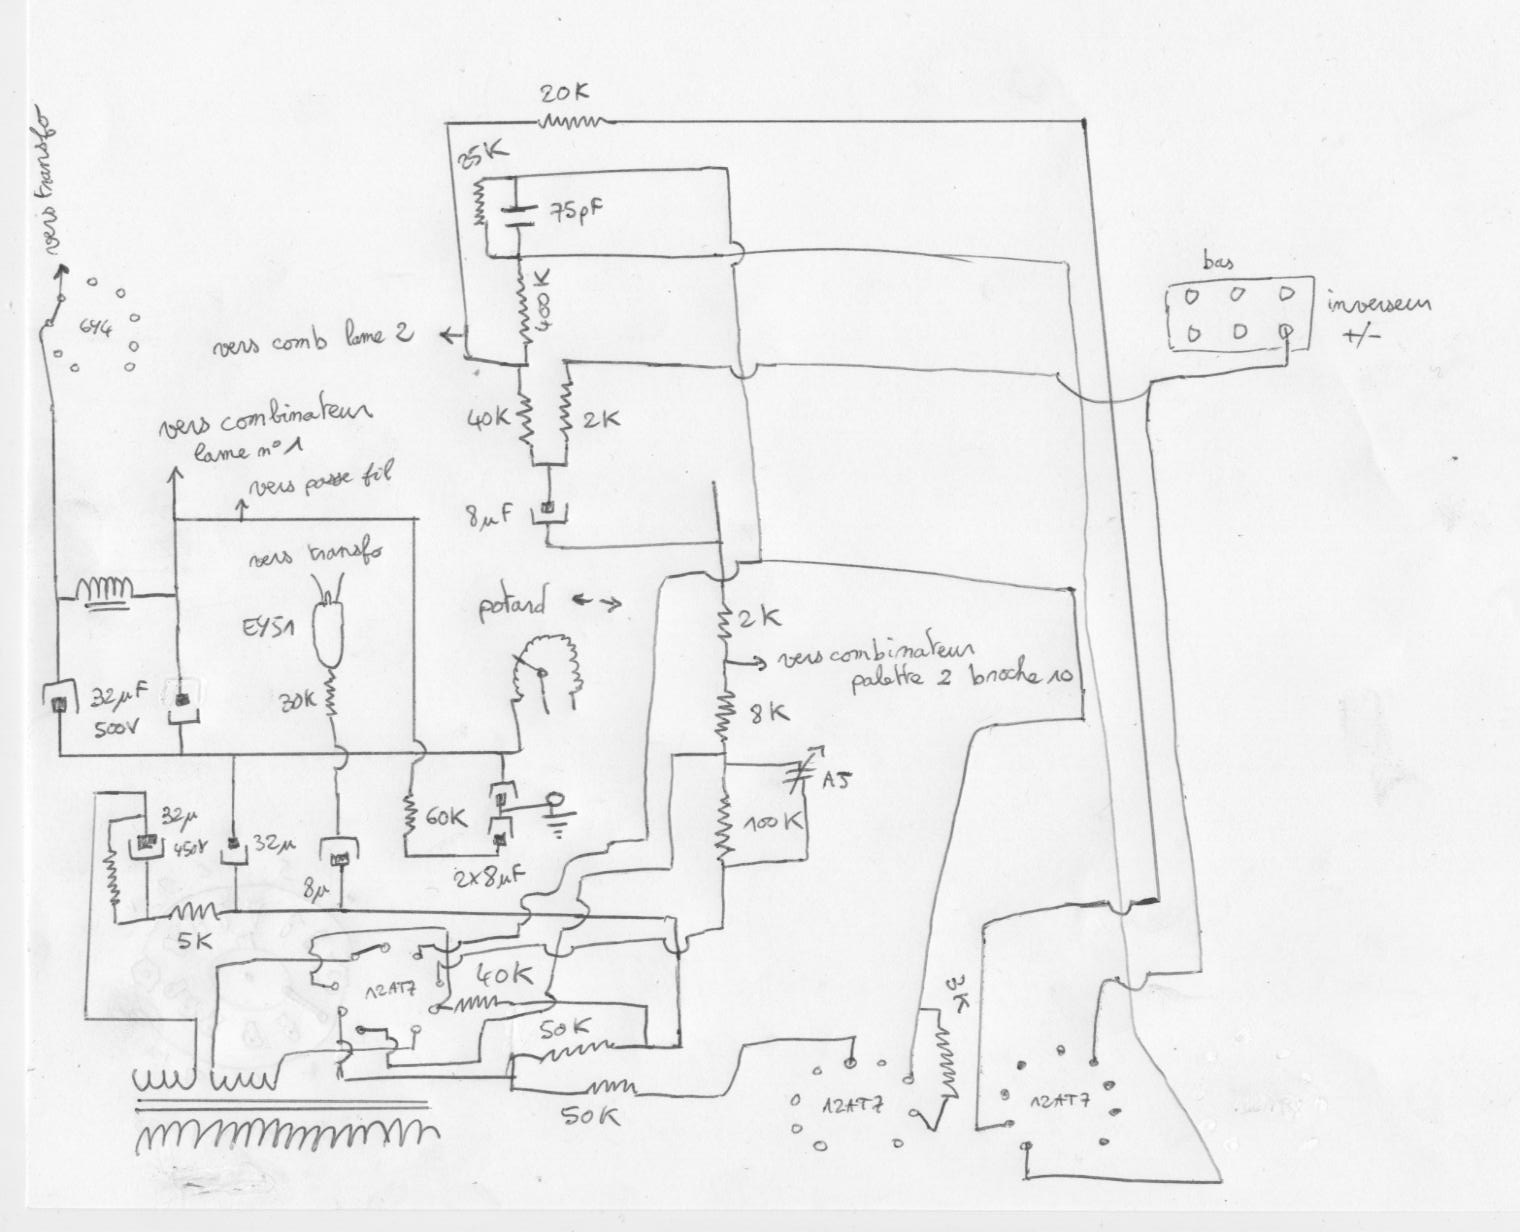 20K
25K
75pF
400K
vers transfo
6Y4
vers comb lame 2
bas
inverseur
+/-
40K
2K
vers combinateur
lame n°1
vers passe fil
8µF
vers transfo
EY51
potard
2K
vers combinateur
palette 2 broche 10
30K
8K
32µF
500V
A5
60K
100K
32µ
450V
32µ
2x8µF
8µ
5K
12AT7
40K
3K
50K
50K
12AT7
12AT7